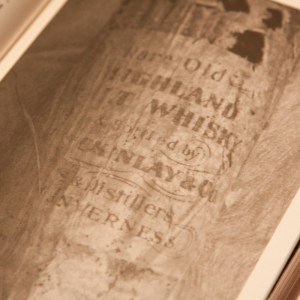 Rare Old
HIGHLAND
LT WHISKY
by
KINLAY & Co
Distillers
INVERNESS